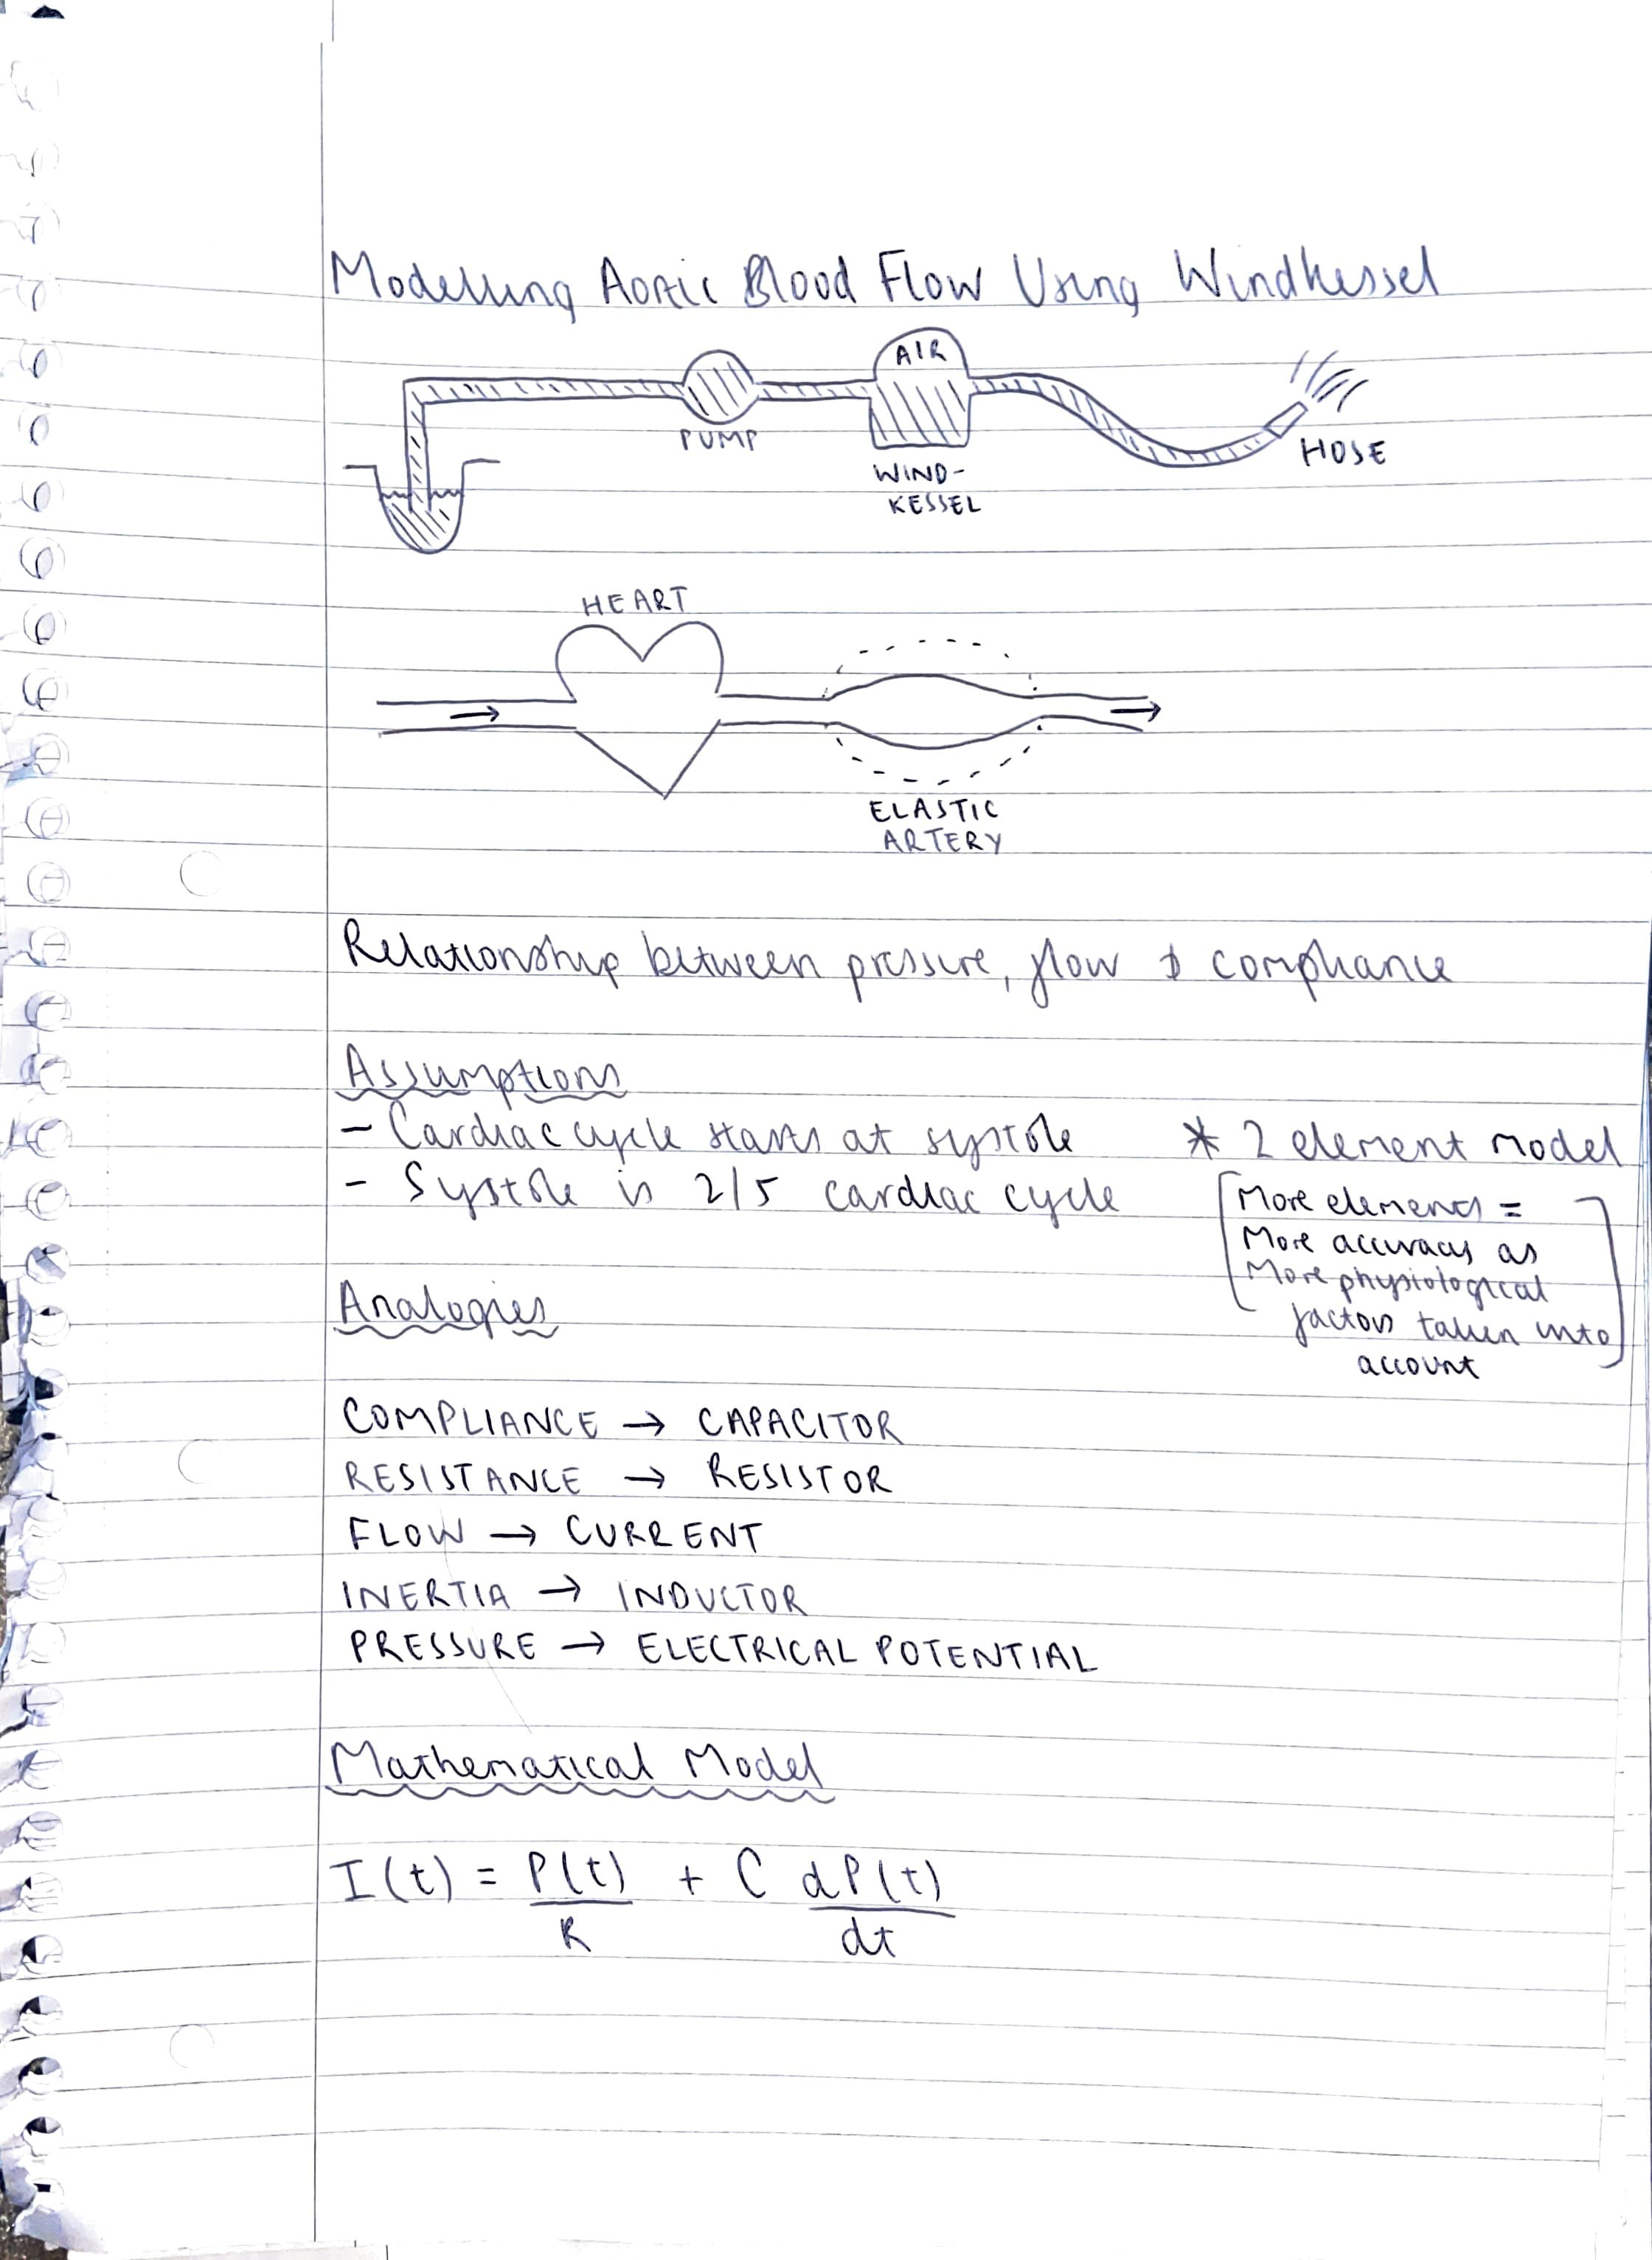 Modelling Aortic Blood Flow Using Windkessel
AIR
PUMP
WIND-
KESSEL
HOSE
HEART
ELASTIC
ARTERY
Relationship between pressure, flow & compliance
Assumptions
- Cardiac cycle starts at systole
- Systole is 2/5 cardiac cycle
* 2 element model
[More elements =
More accuracy as
More physiological
factors taken into
account]
Analogies
COMPLIANCE → CAPACITOR
RESISTANCE → RESISTOR
FLOW → CURRENT
INERTIA → INDUCTOR
PRESSURE → ELECTRICAL POTENTIAL
Mathematical Model
I(t) = P(t)/R + C dP(t)/dt